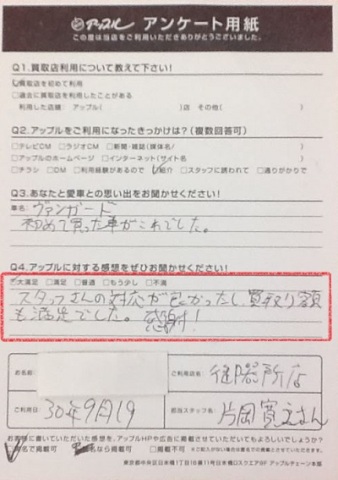 アップル アンケート用紙
この度は当店をご利用いただきありがとうございました。
Q1.買取店利用について教えて下さい!
買取店を初めて利用
□過去に買取店を利用したことがある
利用した店種 アップル( )店 その他( )
Q2.アップルをご利用になったきっかけは?(複数回答可)
□テレビCM □ラジオCM □新聞・雑誌(媒体名: )
□アップルのホームページ □インターネット(サイト名 )
□チラシ □DM □利用経験があるので 紹介 □スタッフに誘われて □通りがかりで
Q3.あなたと愛車との思い出をお聞かせください!
車名 ヴァンガード
初めて買った車がこれでした。
Q4.アップルに対する感想をぜひお聞かせください!
大満足 □満足 □普通 □もう少し □不満
スタッフさんの対応が良かったし、買取り額
も満足でした。感謝!
お名前
ご利用店名:
ご利用日 30年9月19
担当スタッフ名: 片岡寛之さん
お客様に書いていただいた感想を、アップルHPや広告に掲載させていただいてもよろしいでしょうか?
名で掲載可 なら掲載可 □掲載不可
東京都中央区日本橋1丁目18番11号日本橋DスクエアBF アップルチェーン本部